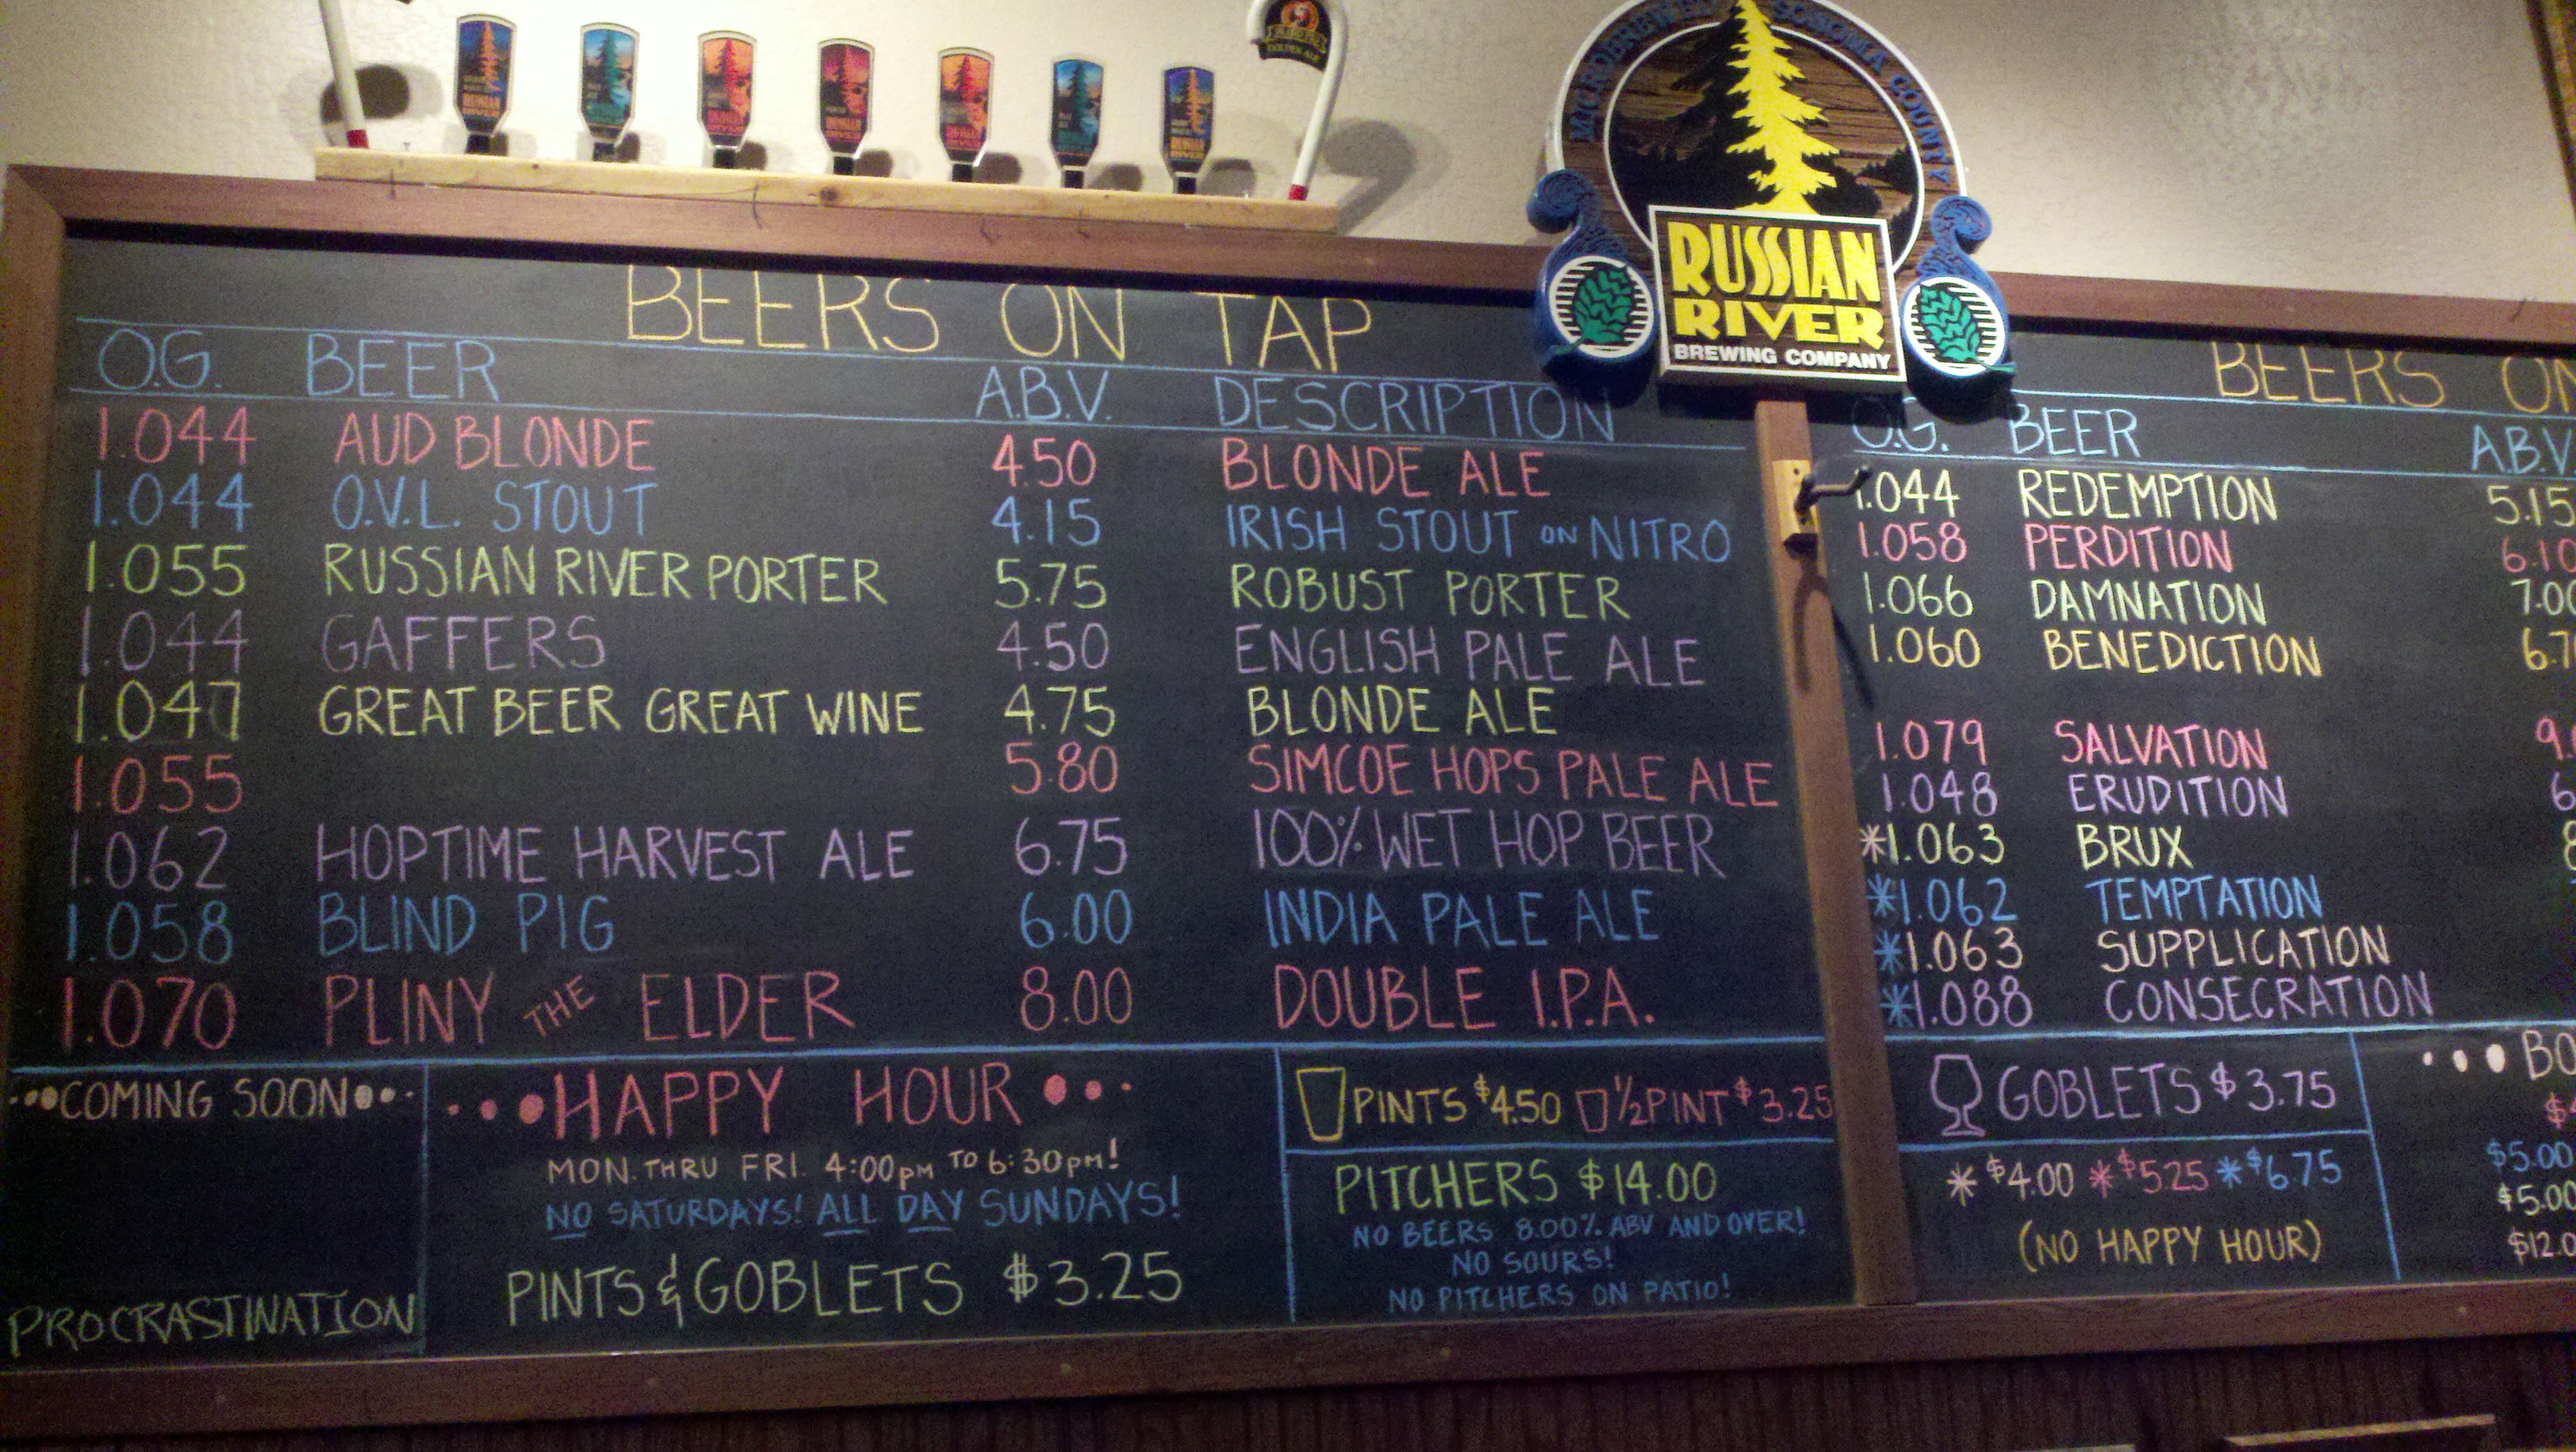 MICROBREWERY SONOMA COUNTY
RUSSIAN
RIVER
BREWING COMPANY
BEERS ON TAP
O.G. BEER A.B.V. DESCRIPTION
1.044 AUD BLONDE 4.50 BLONDE ALE
1.044 O.V.L. STOUT 4.15 IRISH STOUT ON NITRO
1.055 RUSSIAN RIVER PORTER 5.75 ROBUST PORTER
1.044 GAFFERS 4.50 ENGLISH PALE ALE
1.047 GREAT BEER GREAT WINE 4.75 BLONDE ALE
1.055 5.80 SIMCOE HOPS PALE ALE
1.062 HOPTIME HARVEST ALE 6.75 100% WET HOP BEER
1.058 BLIND PIG 6.00 INDIA PALE ALE
1.070 PLINY THE ELDER 8.00 DOUBLE I.P.A.
COMING SOON
PROCRASTINATION
HAPPY HOUR
MON. THRU FRI. 4:00pm TO 6:30pm!
NO SATURDAYS! ALL DAY SUNDAYS!
PINTS & GOBLETS $3.25
PINTS $4.50 1/2 PINT $3.25
PITCHERS $14.00
NO BEERS 8.00% ABV AND OVER!
NO SOURS!
NO PITCHERS ON PATIO!
BEERS ON
O.G. BEER A.B.V
1.044 REDEMPTION 5.15
1.058 PERDITION 6.10
1.066 DAMNATION 7.00
1.060 BENEDICTION
1.079 SALVATION
1.048 ERUDITION
*1.063 BRUX
*1.062 TEMPTATION
*1.063 SUPPLICATION
*1.088 CONSECRATION
GOBLETS $3.75
* $4.00 * $5.25 * $6.75
(NO HAPPY HOUR)
BO
$5.00
$5.00
$12.0